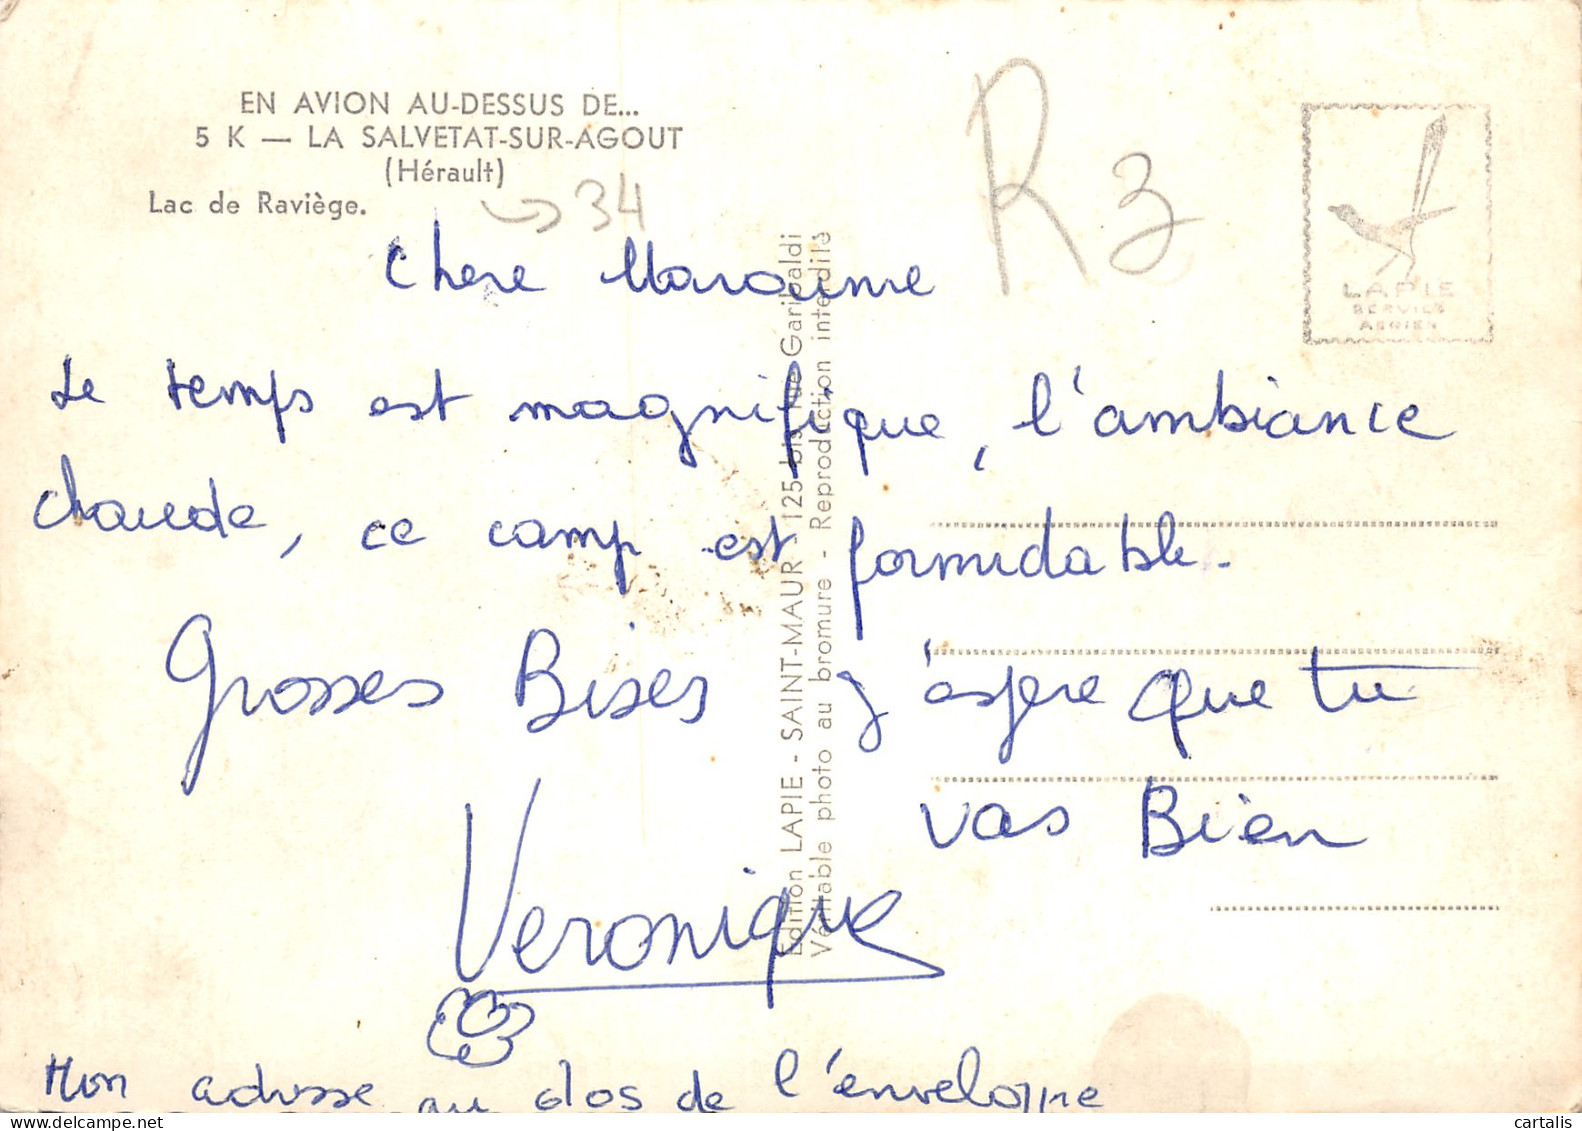 EN AVION AU-DESSUS DE...
5 K — LA SALVETAT-SUR-AGOUT
(Hérault)
Lac de Raviège.
34
R 3
LAPIE
SERVICE
AERIEN
Chere
Le temps est magnifique, l'ambiance
chaude, ce camp est formidable.
Grosses Bises j'espere que tu
vas Bien
Veronique
Mon adresse au dos de l'enveloppe
Edition LAPIE - SAINT-MAUR - 125 bis, rue Garibaldi
Véritable photo au bromure - Reproduction interdite
cartalis